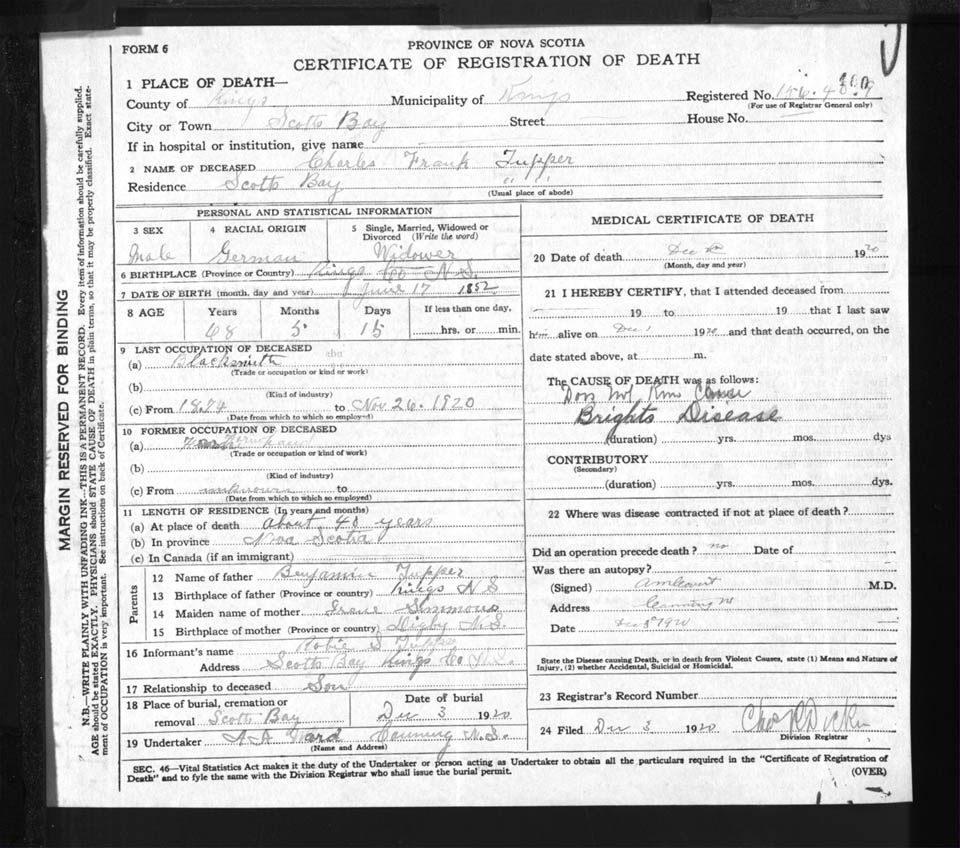 FORM 6
PROVINCE OF NOVA SCOTIA
CERTIFICATE OF REGISTRATION OF DEATH
1 PLACE OF DEATH—
County of Kings Municipality of Kings Registered No.
(For use of Registrar General only)
City or Town Scotts Bay Street House No.
If in hospital or institution, give name
2 NAME OF DECEASED Charles Frank Tupper
Residence Scotts Bay " "
(Usual place of abode)
PERSONAL AND STATISTICAL INFORMATION
3 SEX 4 RACIAL ORIGIN 5 Single, Married, Widowed or Divorced (Write the word)
Male German Widower
6 BIRTHPLACE (Province or Country) Kings Co N.S.
7 DATE OF BIRTH (month, day and year) June 17 1852
8 AGE Years Months Days If less than one day,
68 5 15 hrs. or min.
9 LAST OCCUPATION OF DECEASED
(a) Blacksmith
(Trade or occupation or kind or work)
(b)
(Kind of industry)
(c) From 1874 to Nov 26. 1920
(Date from which to which so employed)
10 FORMER OCCUPATION OF DECEASED
(a)
(Trade or occupation or kind of work)
(b)
(Kind of industry)
(c) From unknown to
(Date from which to which so employed)
11 LENGTH OF RESIDENCE (In years and months)
(a) At place of death About 40 years
(b) In province Nova Scotia
(c) In Canada (if an immigrant)
Parents
12 Name of father Benjamin Tupper
13 Birthplace of father (Province or country) Kings N S
14 Maiden name of mother Simmons
15 Birthplace of mother (Province or country) Digby N.S.
16 Informant's name Robie S Tupper
Address Scotts Bay Kings Co N.S.
17 Relationship to deceased Son
18 Place of burial, cremation or removal Scotts Bay Date of burial Dec 3 1920
19 Undertaker A A Ward Canning N.S.
(Name and Address)
MEDICAL CERTIFICATE OF DEATH
20 Date of death Dec 1920
(Month, day and year)
21 I HEREBY CERTIFY, that I attended deceased from
19 to 19 that I last saw
him alive on Dec 1 1920 and that death occurred, on the
date stated above, at m.
The CAUSE OF DEATH was as follows:
Does not Know Cause
Brights Disease
(duration) yrs. mos. dys
CONTRIBUTORY
(Secondary)
(duration) yrs. mos. dys.
22 Where was disease contracted if not at place of death?
Did an operation precede death? no Date of
Was there an autopsy?
(Signed) M.D.
Address Canning NS
Date Dec 3 1920
State the Disease causing Death, or in death from Violent Causes, state (1) Means and Nature of
Injury, (2) whether Accidental, Suicidal or Homicidal.
23 Registrar's Record Number
24 Filed Dec 3 1920
Division Registrar
SEC. 46—Vital Statistics Act makes it the duty of the Undertaker or person acting as Undertaker to obtain all the particulars required in the "Certificate of Registration of
Death" and to fyle the same with the Division Registrar who shall issue the burial permit.
(OVER)
MARGIN RESERVED FOR BINDING
N.B.—WRITE PLAINLY WITH UNFADING INK—THIS IS A PERMANENT RECORD. Every item of information should be carefully supplied.
AGE should be stated EXACTLY. PHYSICIANS should STATE CAUSE OF DEATH in plain terms, so that it may be properly classified. Exact state-
ment of OCCUPATION is very important. See instructions on back of Certificate.